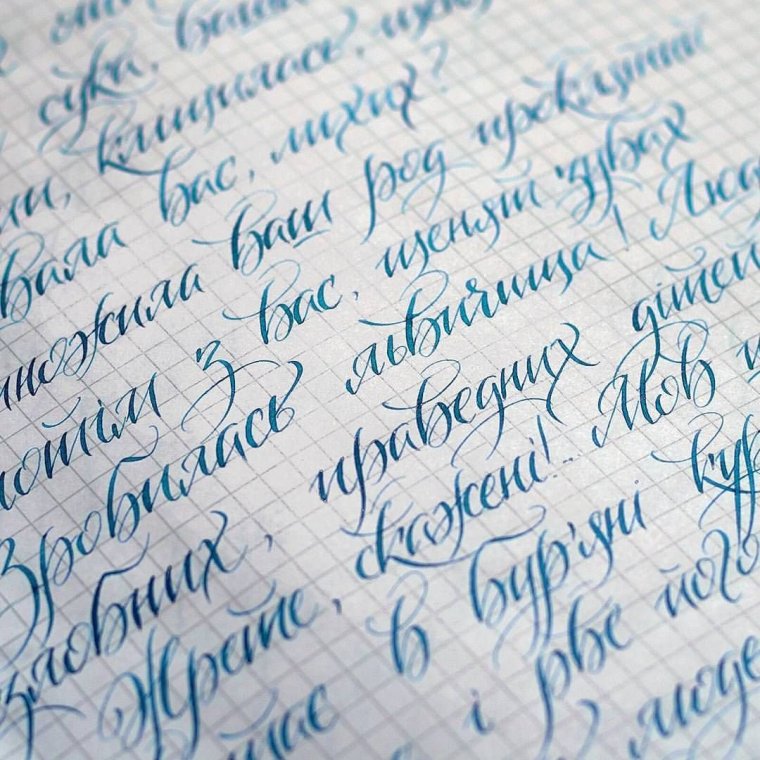 сука, ваша
кліщилась, щен
вала вас, лихих?
множила ваш род проклятий
потім з вас, щенят зубах
Зробилась львичища! Люд
злобних, праведних дітей
Жрете, скажені!.. Мов
ає в бур'яні кур
і рве його